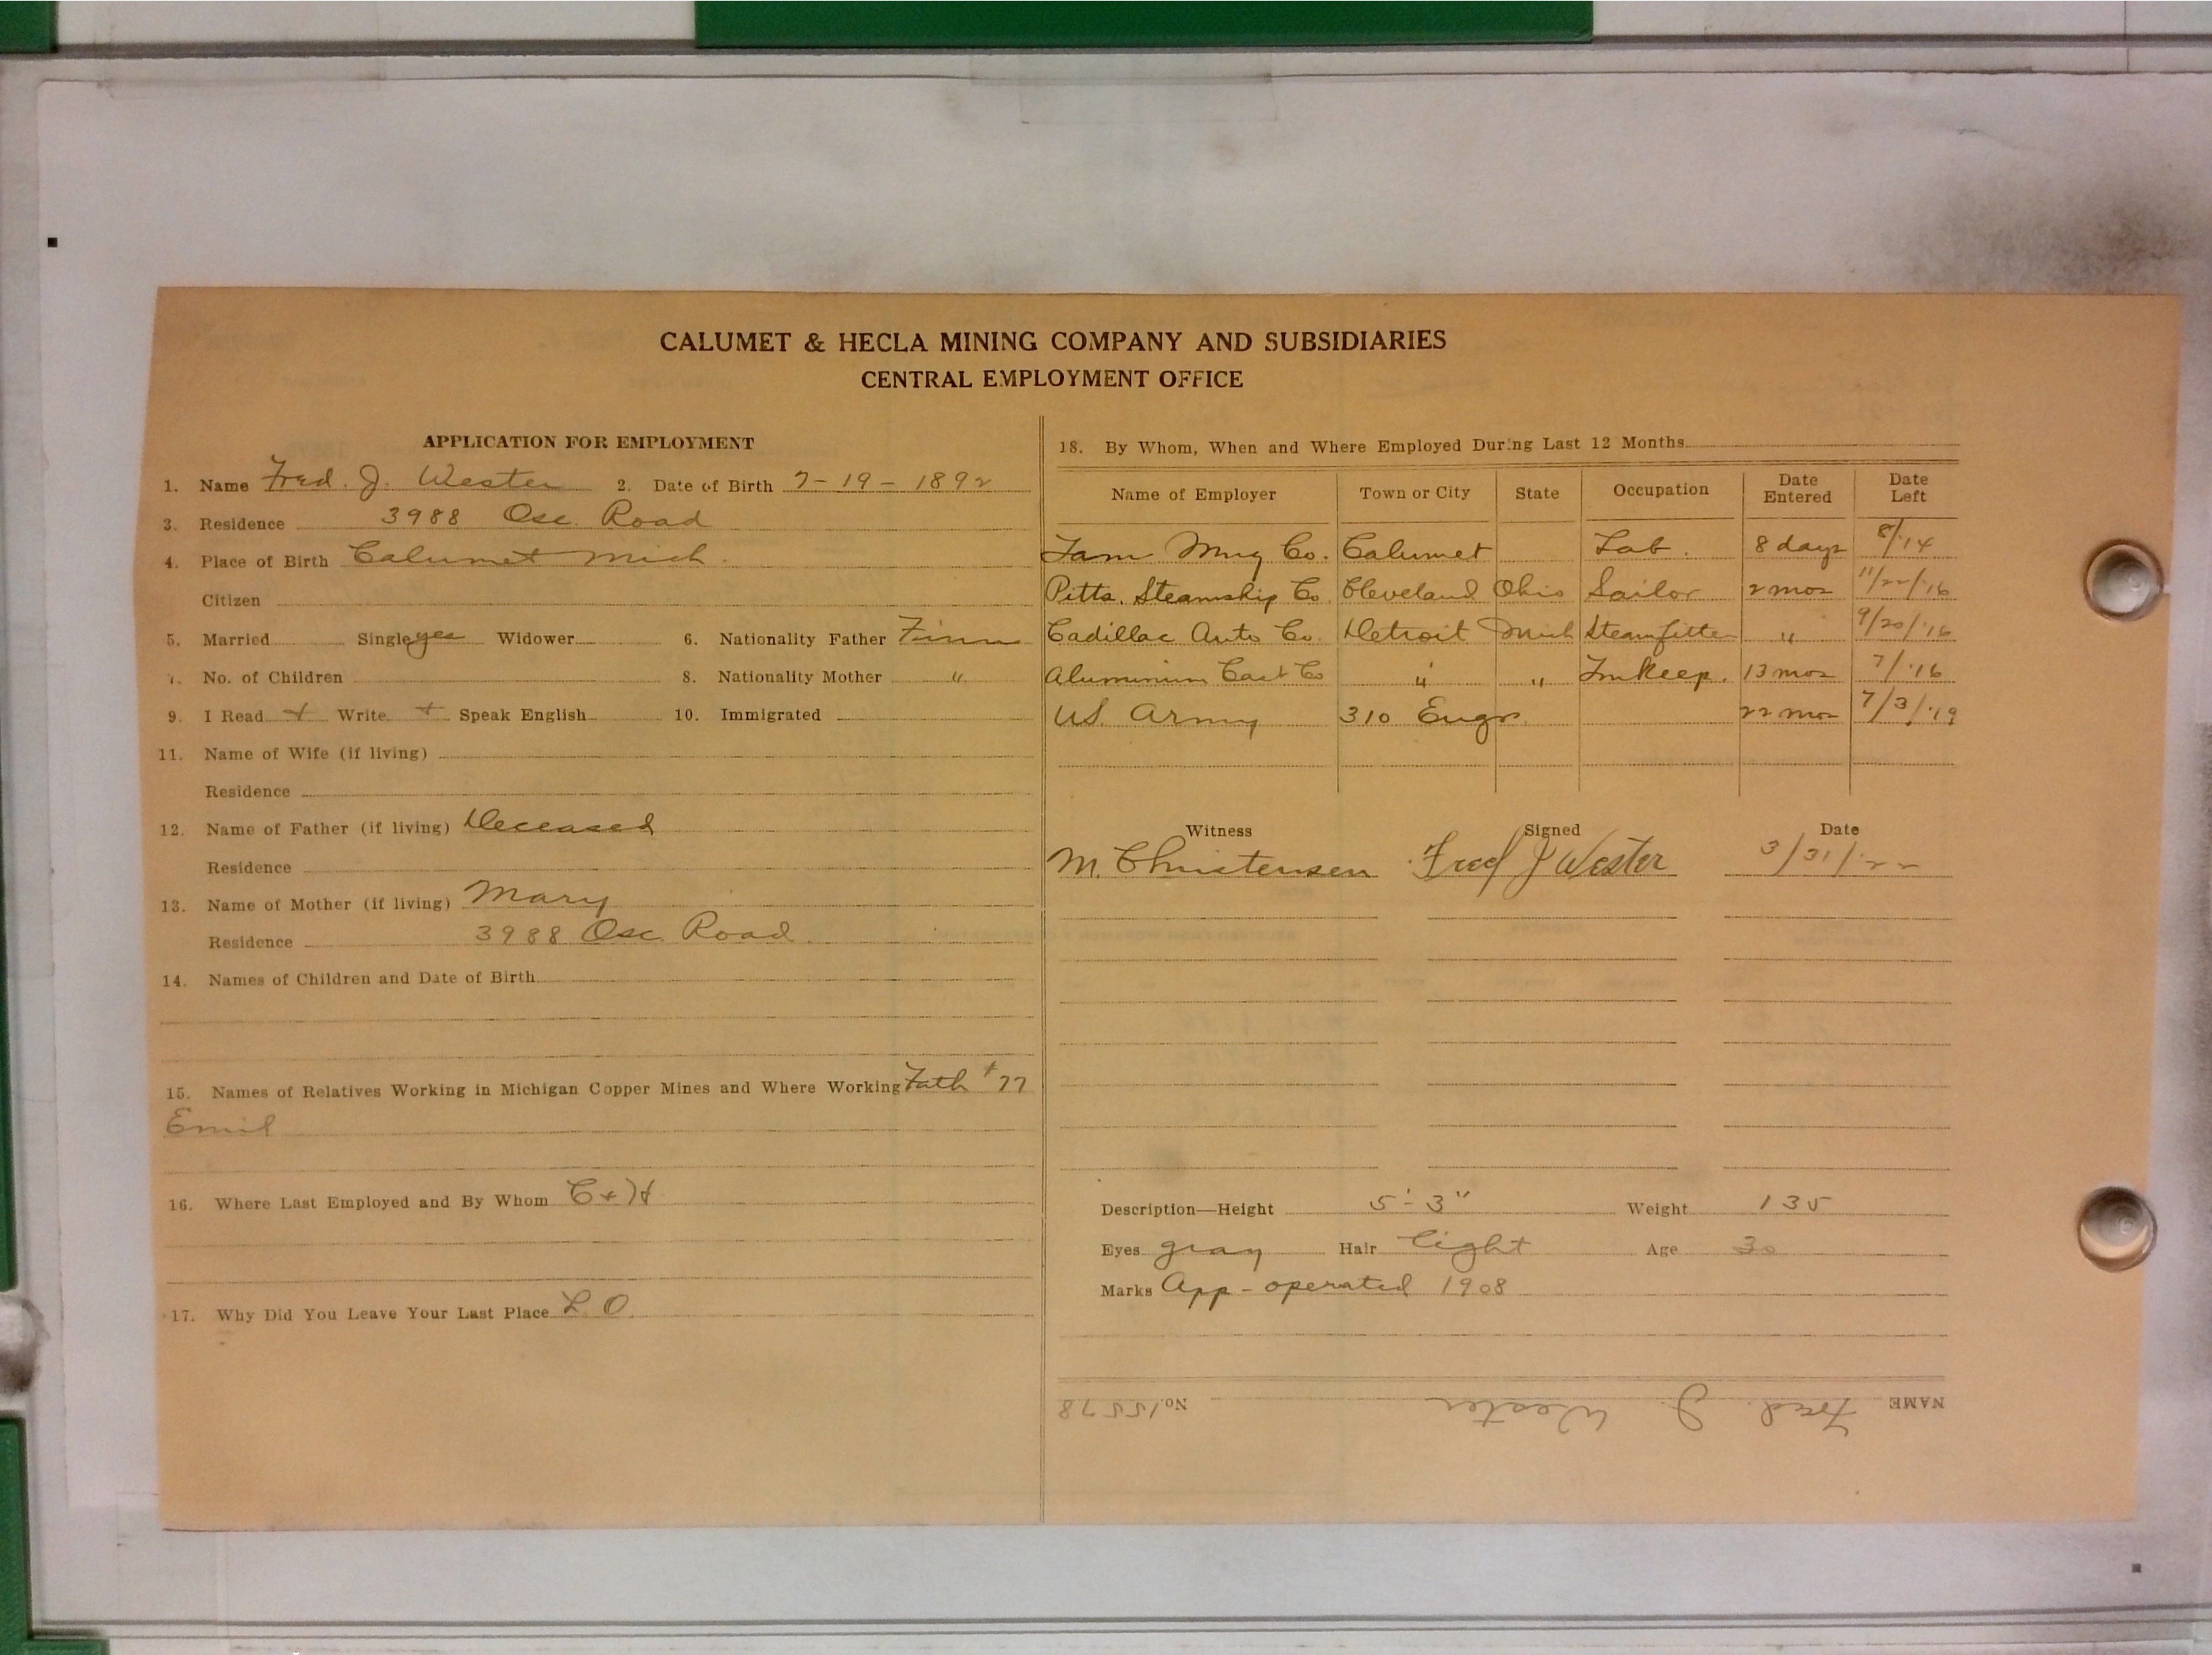 CALUMET & HECLA MINING COMPANY AND SUBSIDIARIES
CENTRAL EMPLOYMENT OFFICE
APPLICATION FOR EMPLOYMENT
1. Name Fred. J. Wester 2. Date of Birth 7-19-1892
3. Residence 3988 Osc. Road
4. Place of Birth Calumet Mich.
Citizen
5. Married Single yes Widower 6. Nationality Father Finn
7. No. of Children 8. Nationality Mother "
9. I Read + Write + Speak English 10. Immigrated
11. Name of Wife (if living)
Residence
12. Name of Father (if living) Deceased
Residence
13. Name of Mother (if living) Mary
Residence 3988 Osc. Road
14. Names of Children and Date of Birth
15. Names of Relatives Working in Michigan Copper Mines and Where Working Fath #77
Emil
16. Where Last Employed and By Whom C+H
17. Why Did You Leave Your Last Place L.O
18. By Whom, When and Where Employed During Last 12 Months
Name of Employer Town or City State Occupation Date Entered Date Left
Tam Mng Co. Calumet Lab. 8 days 8/'14
Pitts. Steamship Co. Cleveland Ohio Sailor 2 mos 11/22/'16
Cadillac Auto Co. Detroit Mich Steamfitter " 9/20/'16
Aluminium Cast Co " " 13 mos 7/'16
US. Army 310 Engr. 22 mos 7/3/'19
Witness Signed Date
M. Christensen Fred J Wester 3/31/'22
Description—Height 5'-3" Weight 135
Eyes gray Hair light Age 30
Marks App-operated 1908
NAME Fred. J. Wester No. 15578